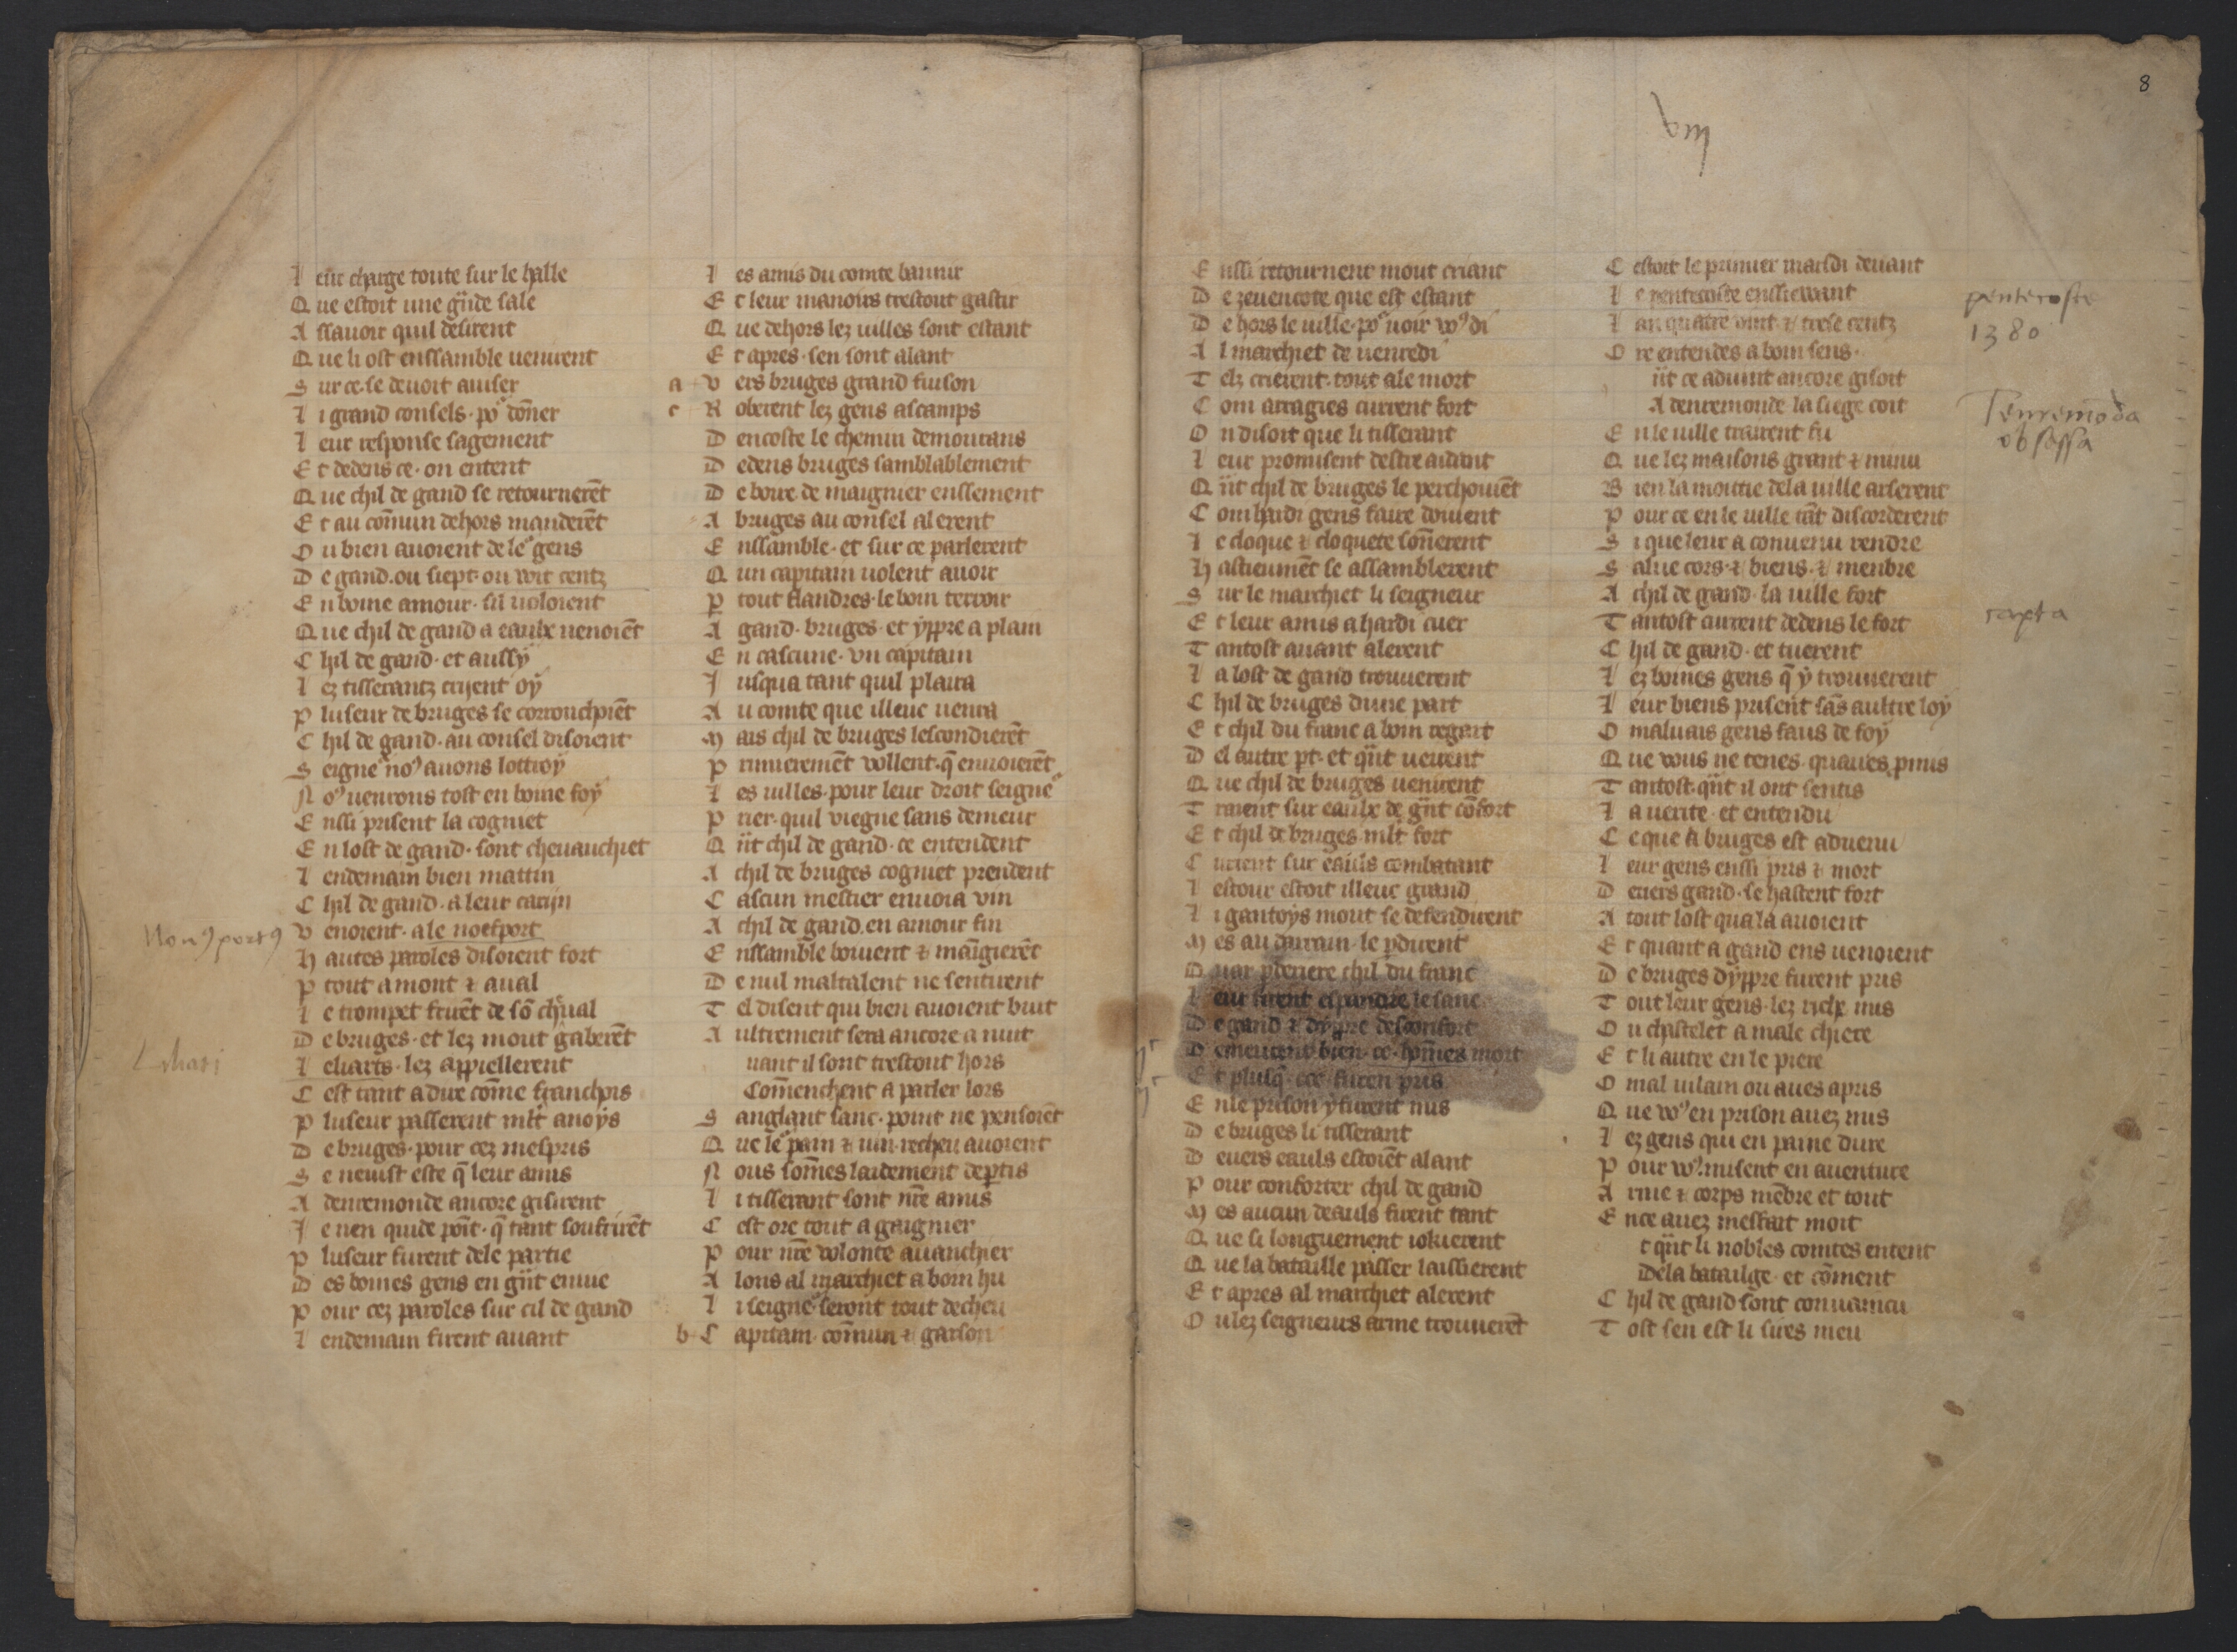 L eur charge toute sur le halle
Q ue estoit une gñde sale
A ssauoir quil desirent
Q ue li ost enssamble uenirent
S ur ce se deuoit auiser
L i grand consels po~ dõner
L eur response sagement
E t dedens ce on entent
Q ue chil de gand se retournerẽt
E t au cõmun dehors manderẽt
O u bien auoient de le~ gens
D e gand ou siept ou wit centz
E n boine amour sil uoloient
Q ue chil de gand a eaulx uenoiẽt
C hil de gand et aussÿ
L ez tisserantz crijent oÿ
P luseur de bruges se corrouchoiẽt
C hil de gand au consel disoient
S eigne~ noꝰ auons lottroÿ
N oꝰ uenrons tost en boine foÿ
E nssi prisent la cogniet
E n lost de gand sont cheuauchiet
L endemain bien mattin
C hil de gand a leur catijn
V enoient a le noefport
H autes paroles disoient fort
P tout amont ⁊ aual
L e trompet
D e bruges et lez mout gaberẽt
L eliarts lez appiellerent
C est tant a dire cõme franchois
P luseur passerent mlt anoÿs
D e bruges pour cez mespris
S e neuist este q̃ leur amis
A denremonde ancore gisirent
J e nen quide poĩt q̃ tant soufrirẽt
P luseur furent dele partie
D es boines gens en gñt enuie
P our cez paroles sur cil de gand
L endemain furent auant
L es amis du comte bannir
E t leur manoirs trestout gastir
Q ue dehors lez uilles sont estant
E t apres sen sont alant
a V ers bruges grand fuison
c R oberent lez gens as camps
D encoste le chemin demourans
D edens bruges samblablement
D e boire de maignier enssement
A bruges au consel alerent
E nssamble et sur ce parlerent
Q un capitain uolent auoir
P tout flandres le boin terroir
A gand bruges et ÿppre a plain
E n cascune vn capitain
J usqua tant quil plaira
A u comte que illeuc uenra
M ais chil de bruges lescondierẽt
P rimieremẽt vollent q̃ enuoierẽt
L es uilles pour leur droit seigne~
P rier quil viegne sans demeur
Q ñt chil de gand ce entendent
A chil de bruges cogniet prendent
C ascun mestier enuoia vin
A chil de gand en amour fin
E nssamble boiuent ⁊ mãngierẽt
D e nul maltalent ne sentirent
T el disent qui bien auoient bruit
A ultrement sera ancore a nuit
uant il sont trestout hors
Cõmenchent a parler lors
S anglant sanc point ne pensoiẽt
Q ue le~ pain ⁊ uin recheu auoient
N ous sõmes laidement deptis
L i tisserant sont nr̃e amis
C est ore tout a gaignier
P our nr̃e volonte auanchier
A lons al marchiet a boin hu
L i seigne~ seront tout decheu
b C apitain cõmun ⁊ garson
8
viij
E nssi retournent mout criant
D e zeuencote que est estant
D e hors le uille po~ uoir voꝰ di
A l marchiet de uenredi
T elz crierent tout ale mort
C om arragies current fort
O n disoit que li tisserant
L eur promisent destre aidant
Q ñt chil de bruges le perchoiuẽt
C om hardi gens faire doiuent
L e cloque ⁊ cloquete sõnerent
H astieumẽt se assamblerent
S ur le marchiet li seigneur
E t leur amis a hardi cuer
T antost auant alerent
L a lost de gand trouuerent
C hil de bruges dune part
E t chil du franc a boin regart
D el autre pt et qñt ueirent
Q ue chil de bruges uenirent
T raient sur eaulx de gñt cõfort
E t chil de bruges mlt fort
C urient sur eauls combatant
L estour estoit illeuc grand
L i gantoÿs mout se defendirent
M es au darrain le pdirent
Q uar pderiere chil du franc
L eur firent espandre le sanc
D e gand ⁊ dÿppre desconfort
D emeurent bien ce hõmes mort
E t plusq̃ furen pris
E nle prison ÿ furent mis
D e bruges li tisserant
D euers eauls estoiẽt alant
P our conforter chil de gand
M es aucun deauls furent tant
Q ue si longuement
Q ue la bataille passer laissierent
E t apres al marchiet alerent
O ulez seigneurs arme trouuerẽt
C estoit le primier mardi deuant
L e pentecoste enssiewant
L an quatre vint ⁊ trese centz
O re entendes a boin sens
ñt ce aduint ancore gisoit
A denremonde la siege
E nle uille trairent fu
Q ue lez maisons grant ⁊ menu
B ien la moittie dela uille arserent
P our ce en le uille tãt discorderent
S i que leur a conuenu rendre
S alue cors ⁊ biens ⁊ menbre
A chil de gand la uille fort
T antost current dedens le fort
C hil de gand et tuerent
L ez boines gens q̃ ÿ trouuerent
L eur biens prisent sãs aultre loÿ
O maluais gens faus de foÿ
Q ue vous ne tenes quaues pmis
T antost qñt il ont sentis
L a uerite et entendu
C e que a bruges est aduenu
L eur gens enssi pris ⁊ mort
D euers gand se hastent fort
A tout lost quala auoient
E t quant a gand ens uenoient
D e bruges dÿppre furent pris
T out leur gens lez riche mis
O u chastelet a male chiere
E t li autre en le piere
O mal uilain ou aues apris
Q ue voꝰ en prison auez mis
L ez gens qui en paine dure
P our voꝰ misent en auenture
A rme ⁊ corps mẽbre et tout
E nce auez mesfait mout
t qñt li nobles comtes entent
Dela batailge et cõment
C hil de gand sont conuaincu
T ost sen est li sires meu
Nouꝰ portꝰ
Liliari
pentecoste
1380
Tenremõda
obsessa
capta